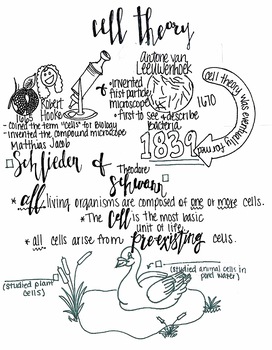 cell theory
Antone van
Leeuwenhoek
• invented
first particle
microscope
• first to see & describe
bacteria
1670
cell theory was eventually formed
1665
Robert
Hooke
- coined the term "cells" for biology
- invented the compound microscope
1839
Matthias Jacob
Schlieder &
Theodore
Schwann
* all living organisms are composed of one or more cells.
* The cell is the most basic
unit of life.
* all cells arise from pre-existing cells.
(studied plant
cells)
(studied animal cells in
pond water)